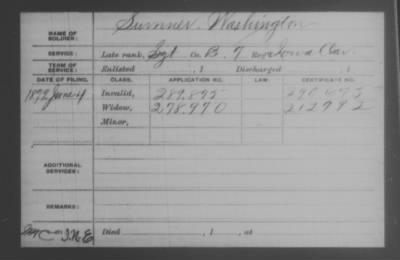 NAME OF SOLDIER: Sumner Washington
SERVICE: Late rank, Sgt Co. B, 7 Reg. Iowa Cav.
TERM OF SERVICE: Enlisted , 1 Discharged , 1
DATE OF FILING. CLASS. APPLICATION NO. LAW. CERTIFICATE NO.
Invalid, 289.895
Widow, 278.970 212992
Minor,
ADDITIONAL SERVICES:
REMARKS:
Died , 1 , at